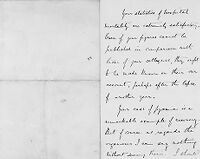 Your statistics of hospital
mortality are extremely satisfactory,
Even if your figures cannot be
published in comparison with
those of your colleagues, they ought
to be made known on their own
account, perhaps after the lapse
of another year.
Your case of pyaemia is a
remarkable example of recovery.
But of course as regards the
I can say nothing
without seeing him. I should